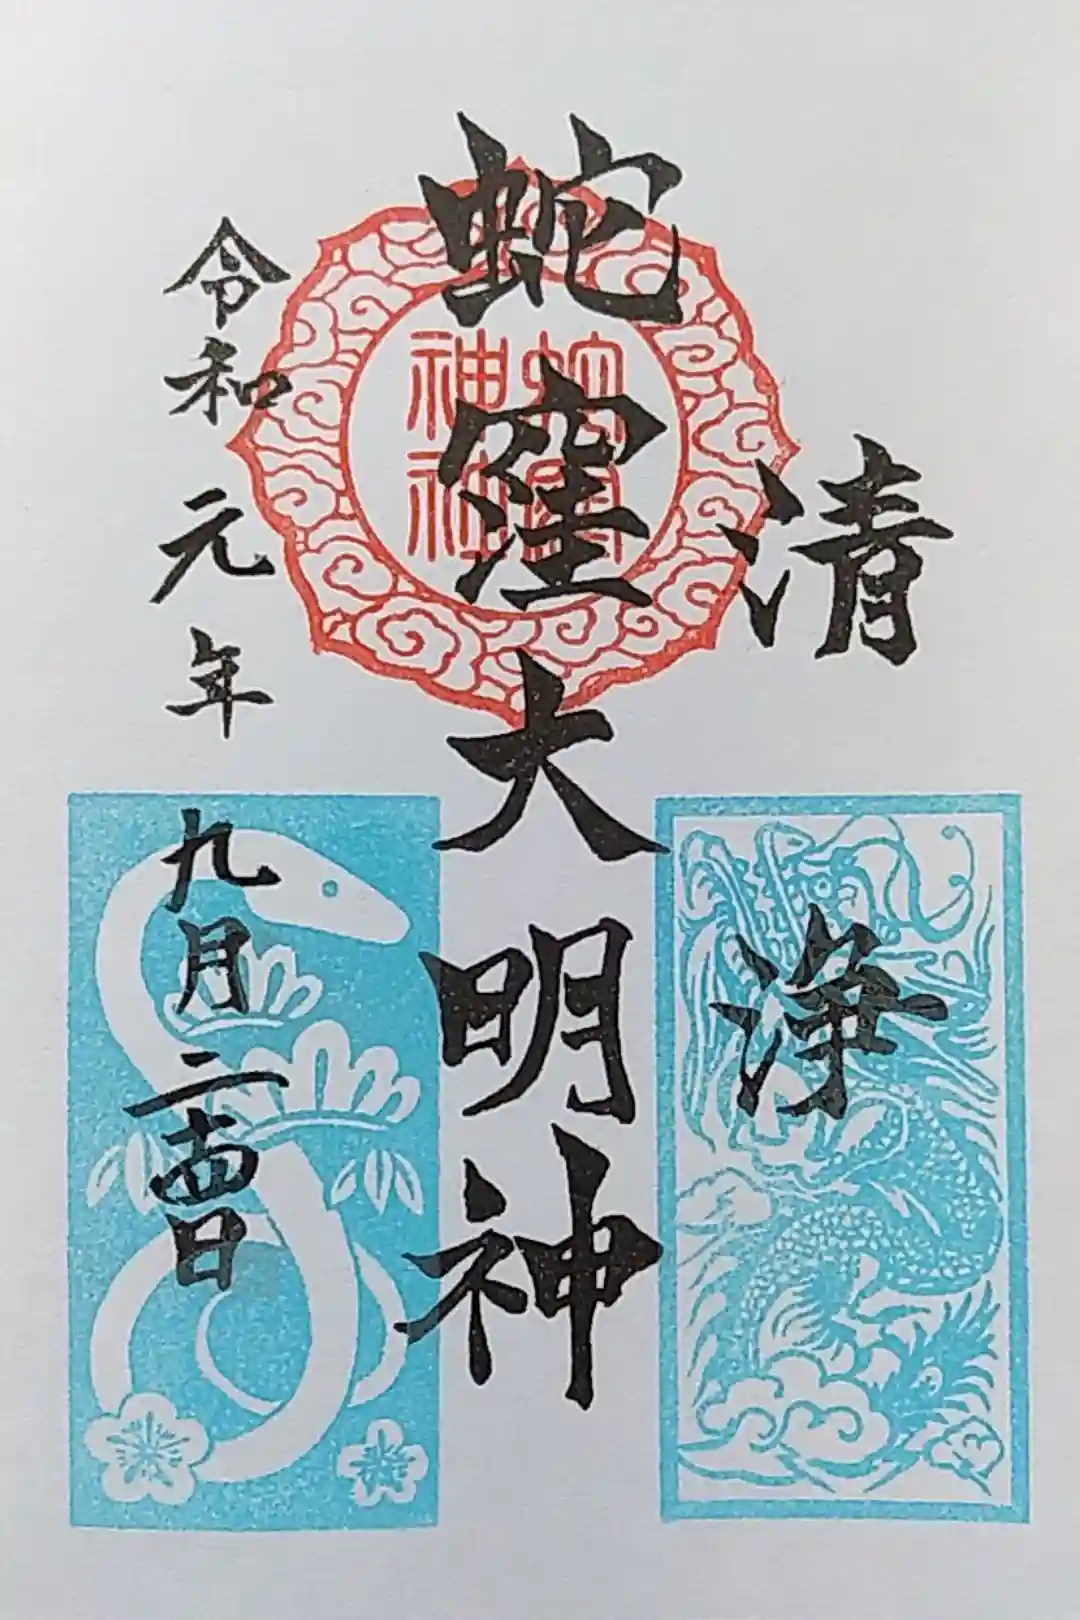 清浄
蛇窪大明神
令和元年九月二十四日